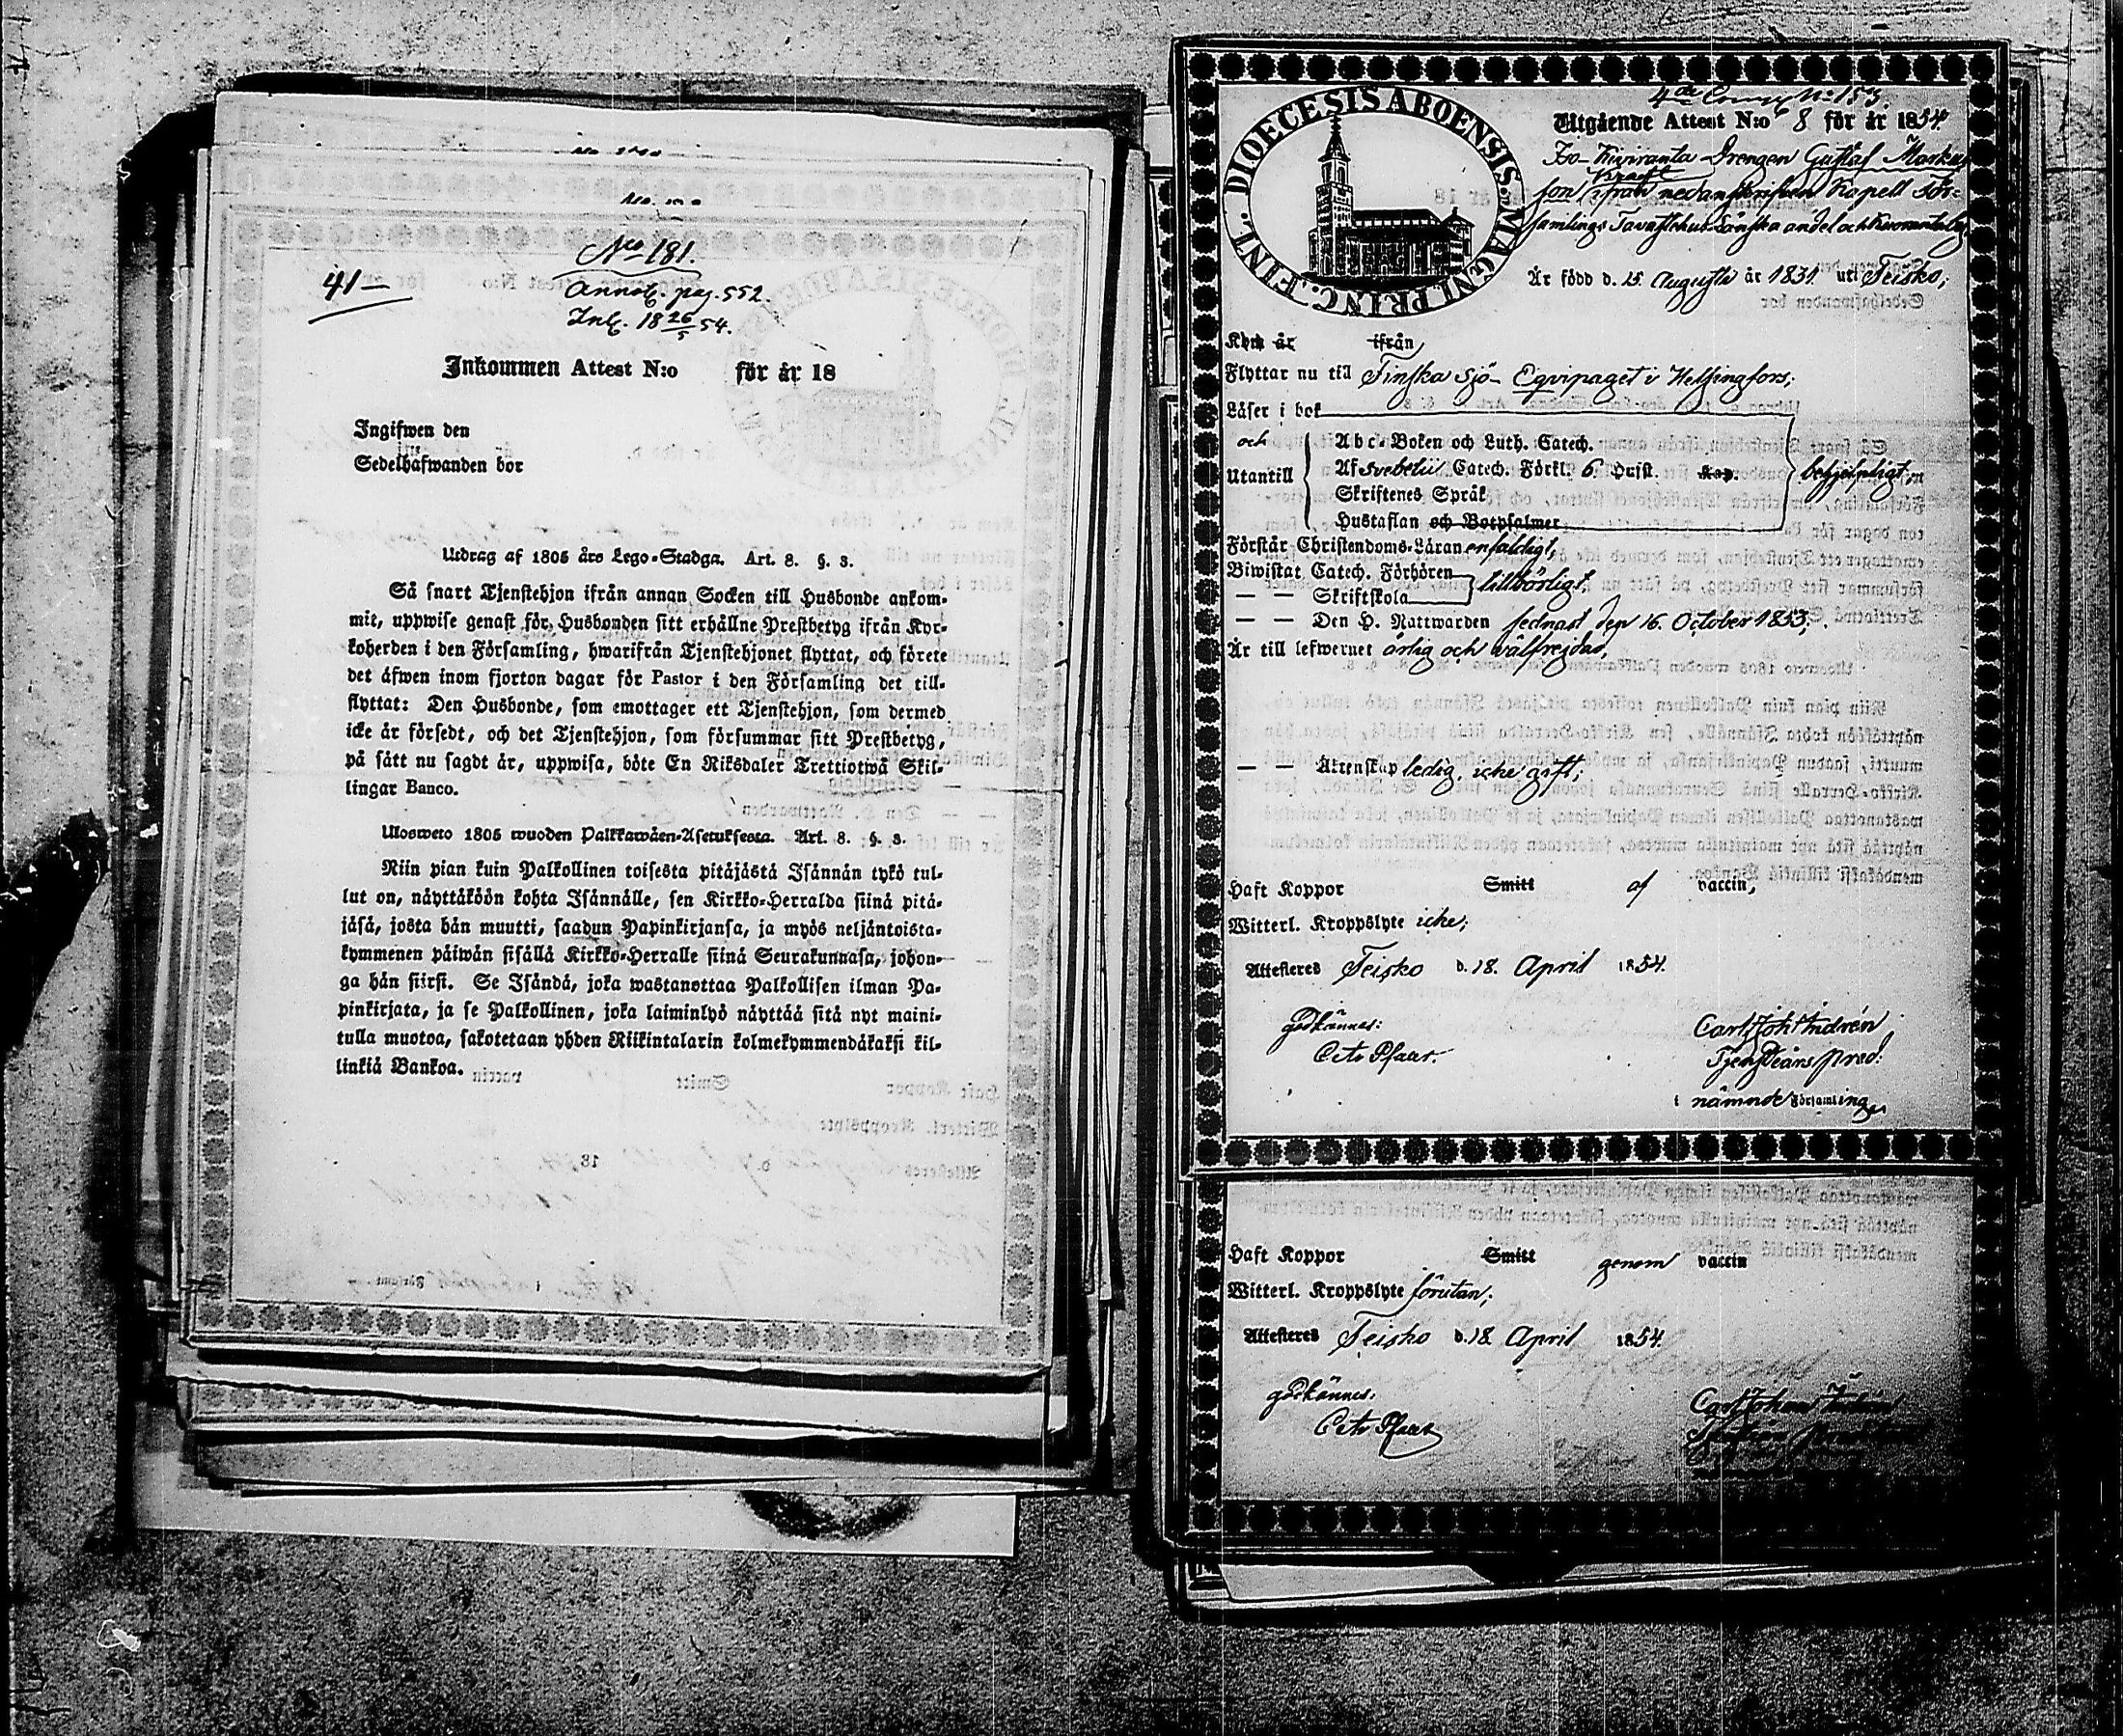 No 181.
41 —
Annot. pag. 552.
Ink. 18 26/5 54.
Inkommen Attest N:o för år 18
Ingifwen den
Sedelhafwanden bor
Utdrag af 1805 års Lego-Stadga. Art. 8. §. 3.
Så snart Tjenstehjon ifrån annan Socken till Husbonde ankom-
mit, uppwise genast för Husbonden sitt erhållne Prestbetyg ifrån Kyr-
koherden i den Församling, hwarifrån Tjenstehjonet flyttat, och förete
det äfwen inom fjorton dagar för Pastor i den Församling det till-
flyttat: Den Husbonde, som emottager ett Tjenstehjon, som dermed
icke är försedt, och det Tjenstehjon, som försummar sitt Prestbetyg,
på sätt nu sagdt är, uppwisa, böte En Riksdaler Trettiotwå Skil-
lingar Banco.
Ulosweto 1805 wuoden Palkkawäen-Asetuksesta. Art. 8. §. 3.
Niin pian kuin Palkollinen toisesta pitäjästä Isännän tykö tul-
lut on, näyttäköön kohta Isännälle, sen Kirkko-Herralda siinä pitä-
jäsä, josta hän muutti, saadun Papinkirjansa, ja myös neljäntoista-
kymmenen päiwän sisällä Kirkko-Herralle siinä Seurakunnasa, johon-
ga hän siirsi. Se Isändä, joka wastanottaa Palkollisen ilman Pa-
pinkirjata, ja se Palkollinen, joka laiminlyö näyttää sitä nyt maini-
tulla muotoa, sakotetaan yhden Riikintalarin kolmekymmendäkaksi kil-
linkiä Bankoa.
DIOECESIS ABOENSIS. MAGNI PRINC. FINL.
4de Comp No 153.
Utgående Attest N:o 8 för år 1854.
Iso-Kiviranta Drengen Gustaf Markus
Kraft
son ifrån nedanskrifven Kapell För-
samlings Tavastehus Länska andel och
Är född d. 15. Augusti år 1831 uti Teisko;
Kom år ifrån
Flyttar nu till Finska Sjö-Eqvipaget i Helsingfors;
Läser i bok
och
Abc-Boken och Luth. Catech.
Utantill
Af Svebelii Catech. Förkl. 6 Hufst. Kap.
behjelpligt;
Skriftenes Språk
Hustaflan och Botpsalmer
Förstår Christendoms-Läran enfaldigt;
Biwistat Catech. Förhören
tillbörligt;
— — Skriftskola
— — Den H. Nattwarden sednast den 16. October 1853;
Är till lefwernet ärlig och välfrejdad,
— — Äktenskap ledig, icke gift;
Haft Koppor Smitt af vaccin,
Witterl. Kroppslyte icke;
Attesteres Teisko d. 18. April 1854.
godkännes:
Carl Joh Andrén
Tjenst. förr. pred:
i nämnde Församling
Haft Koppor Smitt genom vaccin
Witterl. Kroppslyte förutan;
Attesteres Teisko d. 18. April 1854.
godkännes:
Carl Johan Andrén